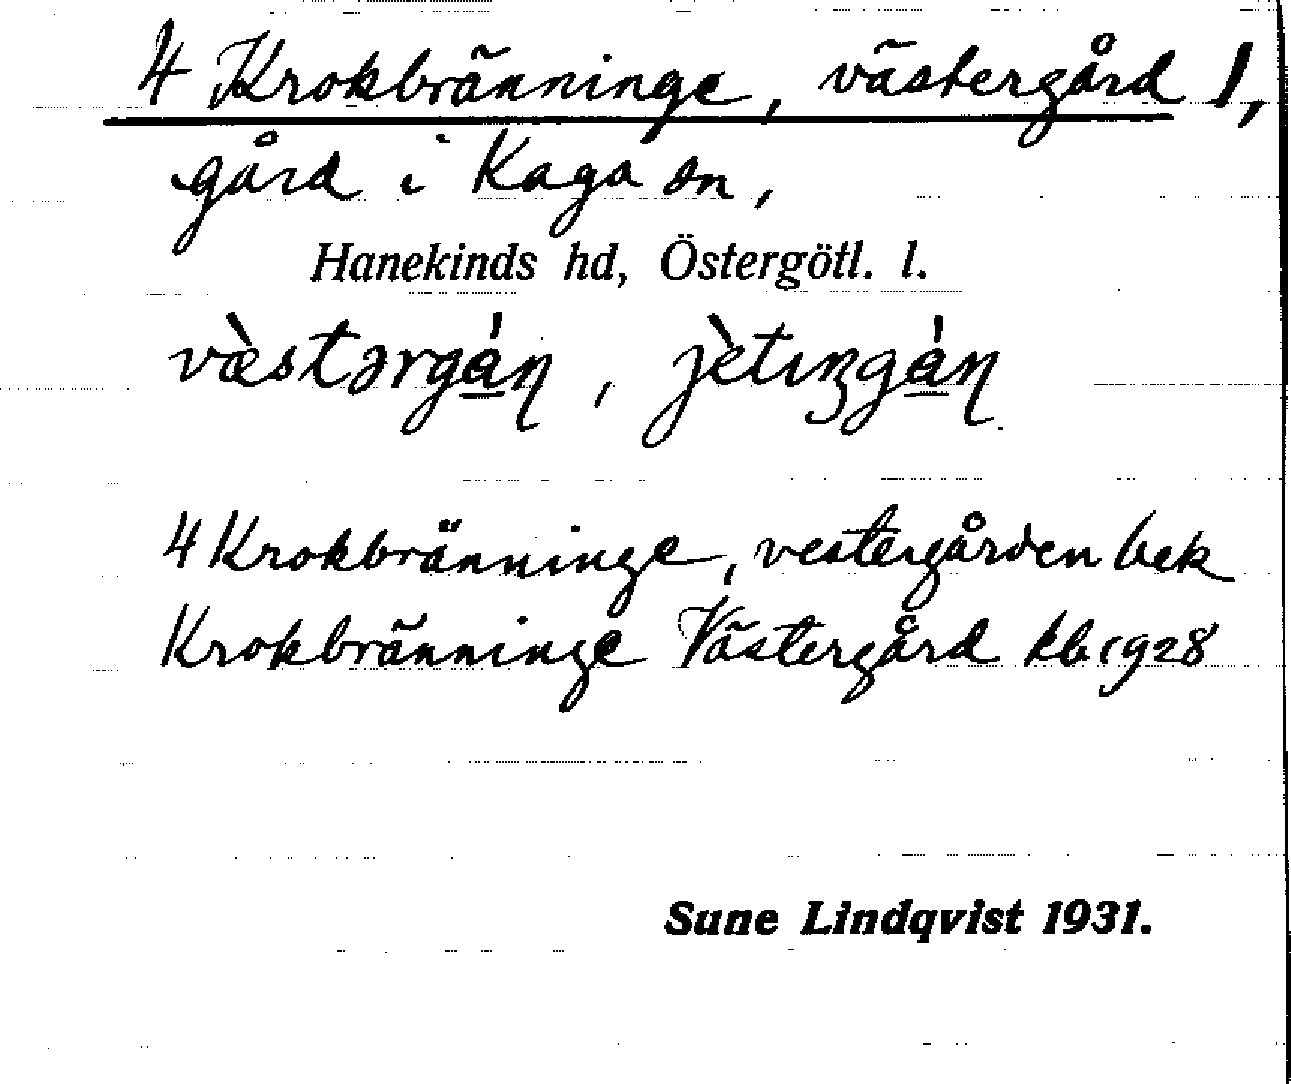 4 Krokbränninge, västergård 1,
gård i Kaga sn,
Hanekinds hd, Östergötl. l.
væ̀stərgáɳ, jètɪŋgáɳ
4 Krokbränninge, vestergården bek
Krokbränninge Västergård kb. 1928
Sune Lindqvist 1931.